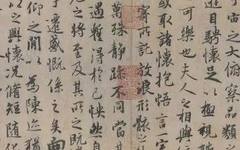 宙之大俯察品類之
遊目騁懷足以極視
可樂也夫人之相與
或取諸懷抱悟言
寄所託放浪形骸
萬殊靜躁不同當其
遇暫得於己怏然自
之將至及其所之既
遷感慨係之矣向
仰之閒以為陳迹
以之興懷況脩短隨化